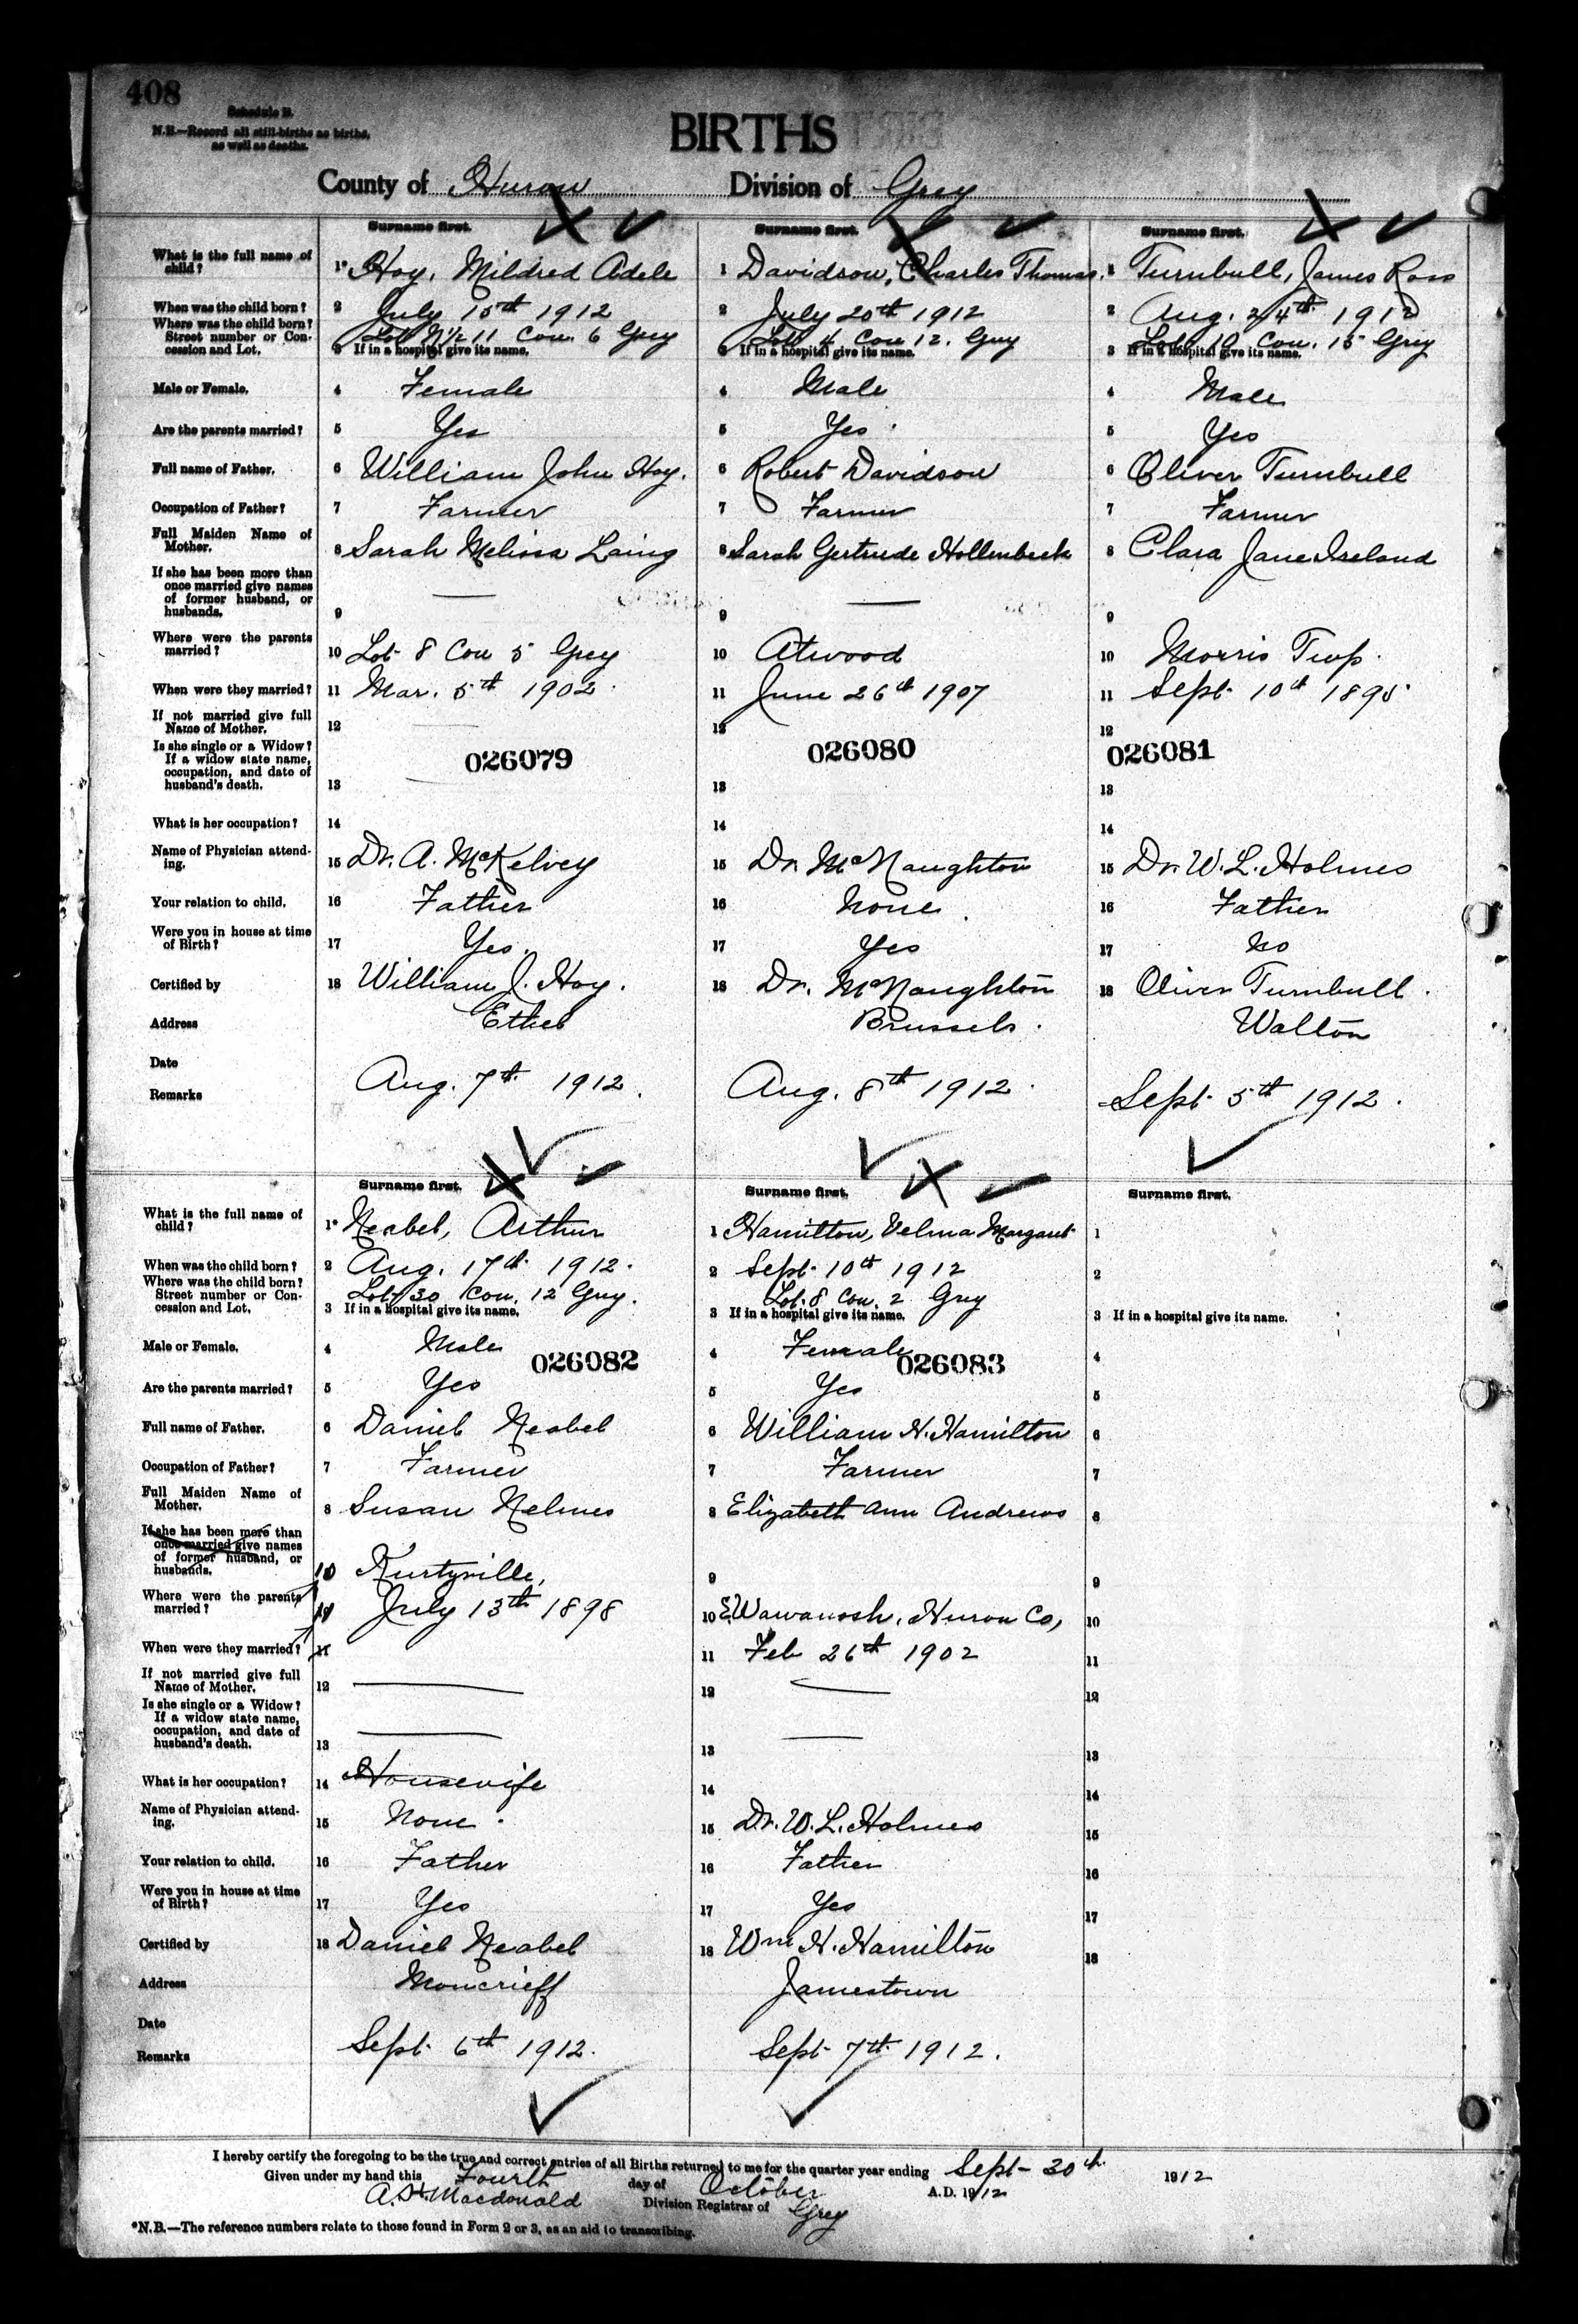 408
Schedule B.
N.B.—Record all still-births as births,
as well as deaths.
BIRTHS
County of Huron Division of Grey
Surname first. Surname first. Surname first.
What is the full name of child? 1* Hoy, Mildred Adele 1 Davidson, Charles Thomas. 1 Turnbull, James Ross
When was the child born? 2 July 15th 1912 2 July 20th 1912 2 Aug. 24th 1912
Where was the child born? Street number or Concession and Lot. Lot N½ 11 Con. 6 Grey Lot 4 Con 12. Grey Lot 19 Con. 15 Grey
3 If in a hospital give its name. 3 If in a hospital give its name. 3 If in a hospital give its name.
Male or Female. 4 Female 4 Male 4 Male
Are the parents married? 5 Yes 5 Yes 5 Yes
Full name of Father. 6 William John Hoy. 6 Robert Davidson 6 Oliver Turnbull
Occupation of Father? 7 Farmer 7 Farmer 7 Farmer
Full Maiden Name of Mother. 8 Sarah Melissa Laing 8 Sarah Gertrude Hollenbeck 8 Clara Jane Ireland
If she has been more than once married give names of former husband, or husbands. 9 — 9 — 9
Where were the parents married? 10 Lot 8 Con 5 Grey 10 Atwood 10 Morris Twp.
When were they married? 11 Mar. 5th 1902 11 June 26th 1907 11 Sept. 10th 1895
If not married give full Name of Mother. 12 — 12 12
026079 026080 026081
Is she single or a Widow? If a widow state name, occupation, and date of husband's death. 13 — 13 13
What is her occupation? 14 14 14
Name of Physician attending. 15 Dr. A. McKelvey 15 Dr. McNaughton 15 Dr. W. L. Holmes
Your relation to child. 16 Father 16 None 16 Father
Were you in house at time of Birth? 17 Yes. 17 Yes 17 No
Certified by 18 William J. Hoy. 18 Dr. McNaughton 18 Oliver Turnbull.
Address Ethel Brussels. Walton
Date
Remarks Aug. 7th 1912. Aug. 8th 1912. Sept. 5th 1912.
Surname first. Surname first. Surname first.
What is the full name of child? 1* Neabel, Arthur 1 Hamilton, Velma Margaret 1
When was the child born? 2 Aug. 17th 1912. 2 Sept. 10th 1912 2
Where was the child born? Street number or Concession and Lot. Lot 30 Con. 12 Grey. Lot. 8 Con. 2 Grey
3 If in a hospital give its name. 3 If in a hospital give its name. 3 If in a hospital give its name.
Male or Female. 4 Male 4 Female 4
026082 026083
Are the parents married? 5 Yes 5 Yes 5
Full name of Father. 6 Daniel Neabel 6 William H. Hamilton 6
Occupation of Father? 7 Farmer 7 Farmer 7
Full Maiden Name of Mother. 8 Susan Nelmes 8 Elizabeth Ann Andrews 8
If she has been more than once married give names of former husband, or husbands. 10 Kurtzville, 9 9
Where were the parents married? 11 July 13th 1898 10 E. Wawanosh, Huron Co, 10
When were they married? 11 11 Feb 26th 1902 11
If not married give full Name of Mother. 12 — 12 — 12
Is she single or a Widow? If a widow state name, occupation, and date of husband's death. 13 — 13 — 13
What is her occupation? 14 Housewife 14 14
Name of Physician attending. 15 None. 15 Dr. W. L. Holmes 15
Your relation to child. 16 Father 16 Father 16
Were you in house at time of Birth? 17 Yes 17 Yes 17
Certified by 18 Daniel Neabel 18 Wm H. Hamilton 18
Address Moncrieff Jamestown
Date
Remarks Sept. 6th 1912. Sept. 7th 1912.
I hereby certify the foregoing to be the true and correct entries of all Births returned to me for the quarter year ending Sept- 30th 1912
Given under my hand this Fourth day of October A.D. 1912
A. H. Macdonald Division Registrar of Grey
*N.B.—The reference numbers relate to those found in Form 2 or 3, as an aid to transcribing.